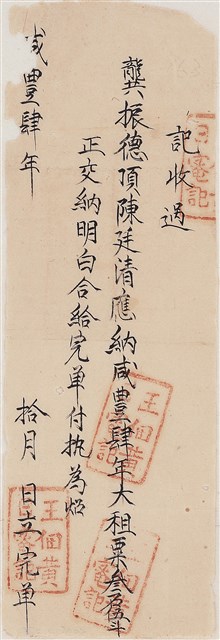 記收過
龔振德頂陳廷清應納咸豊肆年大租粟叁石
正交納明白合給完单付执為炤
咸豊肆年
拾月
日立完单
王佃黃
記